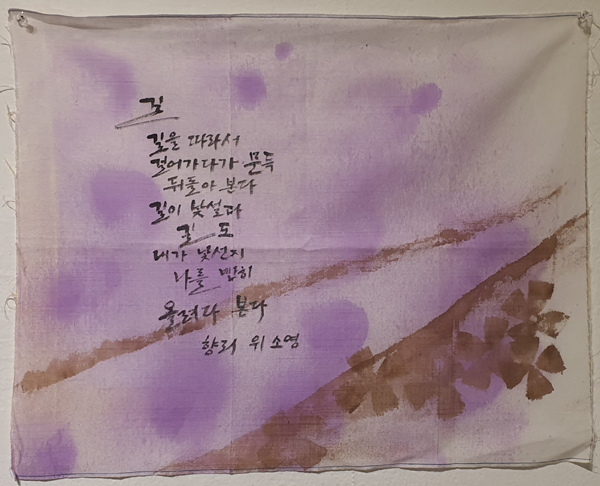 길
길을 따라서
걸어가다가 문득
뒤돌아 본다
길이 낯설다
길도
내가 낯선지
나를 빤히
올려다 본다
향리 위소영